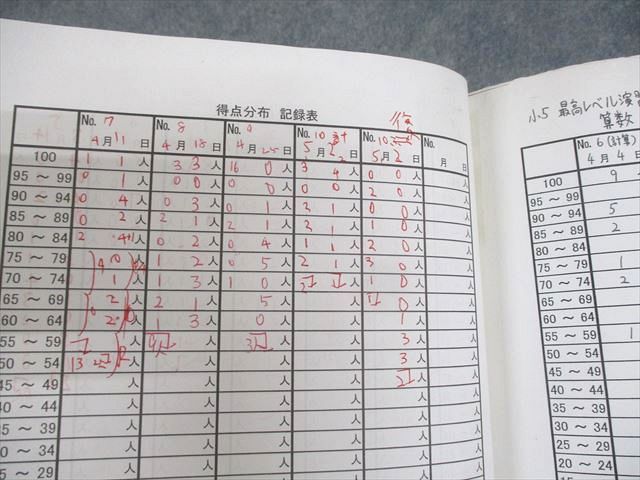 得点分布 記録表
No. 7 No. 8 No. 9 No. 10 No. 10 No.
4月11日 4月18日 4月25日 5月2日 5月2日 月 日
100 1 1人 3 3人 16 0人 3 人 0 0人 人
95 ～ 99 0 1人 0 0人 0 0人 0 0人 2 0人 人
90 ～ 94 0 4人 0 3人 0 1人 2 1人 0 0人 人
85 ～ 89 0 2人 2 1人 2 1人 3 1人 1 0人 人
80 ～ 84 2 人 0 2人 0 4人 1 1人 2 0人 人
75 ～ 79 0人 1 2人 0 5人 2 1人 3 0人 人
70 ～ 74 1人 1 3人 1 0人 人 1 0人 人
65 ～ 69 2人 2 1人 5人 人 0人 人
60 ～ 64 2人 1 3人 0人 人 1人 人
55 ～ 59 人 人 人 人 3人 人
50 ～ 54 13 人 人 人 人 3人 人
45 ～ 49 人 人 人 人 人 人
40 ～ 44 人 人 人 人 人 人
35 ～ 39 人 人 人 人 人 人
30 ～ 34 人 人 人 人 人 人
25 ～ 29 人 人 人 人 人 人
小5 最高レベル演習
算数
No. 6 (計算)
4月4
100 9
95 ～ 99
90 ～ 94 5
85 ～ 89 2
80 ～ 84
75 ～ 79 1
70 ～ 74 2
65 ～ 69
60 ～ 64
55 ～ 59 1
50 ～ 54
45 ～ 49
40 ～ 44
35 ～ 39
30 ～ 34
25 ～ 29
20 ～ 24